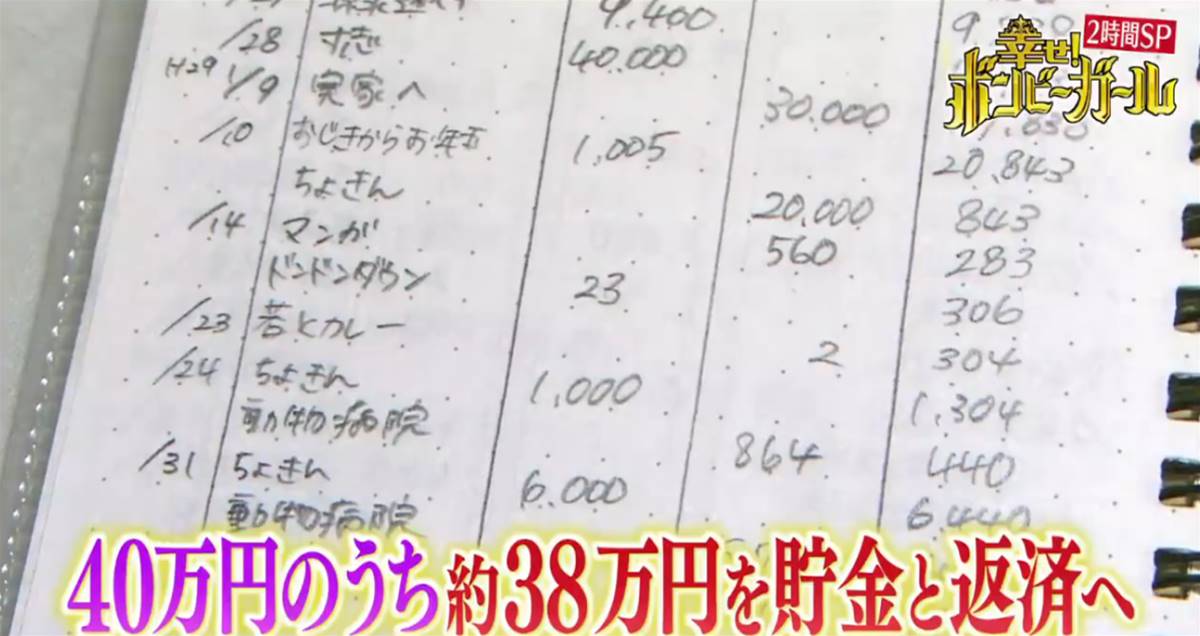 2時間SP
幸せ!
ボンビーガール
9,400
/28 すぎ 40,000
H29 1/9 実家へ 30,000
/10 おじきからお年玉 1,005 20,843
ちょきん 20,000 843
/14 マンガ 560 283
ドンドンダウン 23 306
/23 若とカレー 2 304
/24 ちょきん 1,000 1,304
動物病院 864 440
/31 ちょきん 6,000 6,440
動物病院
40万円のうち約38万円を貯金と返済へ